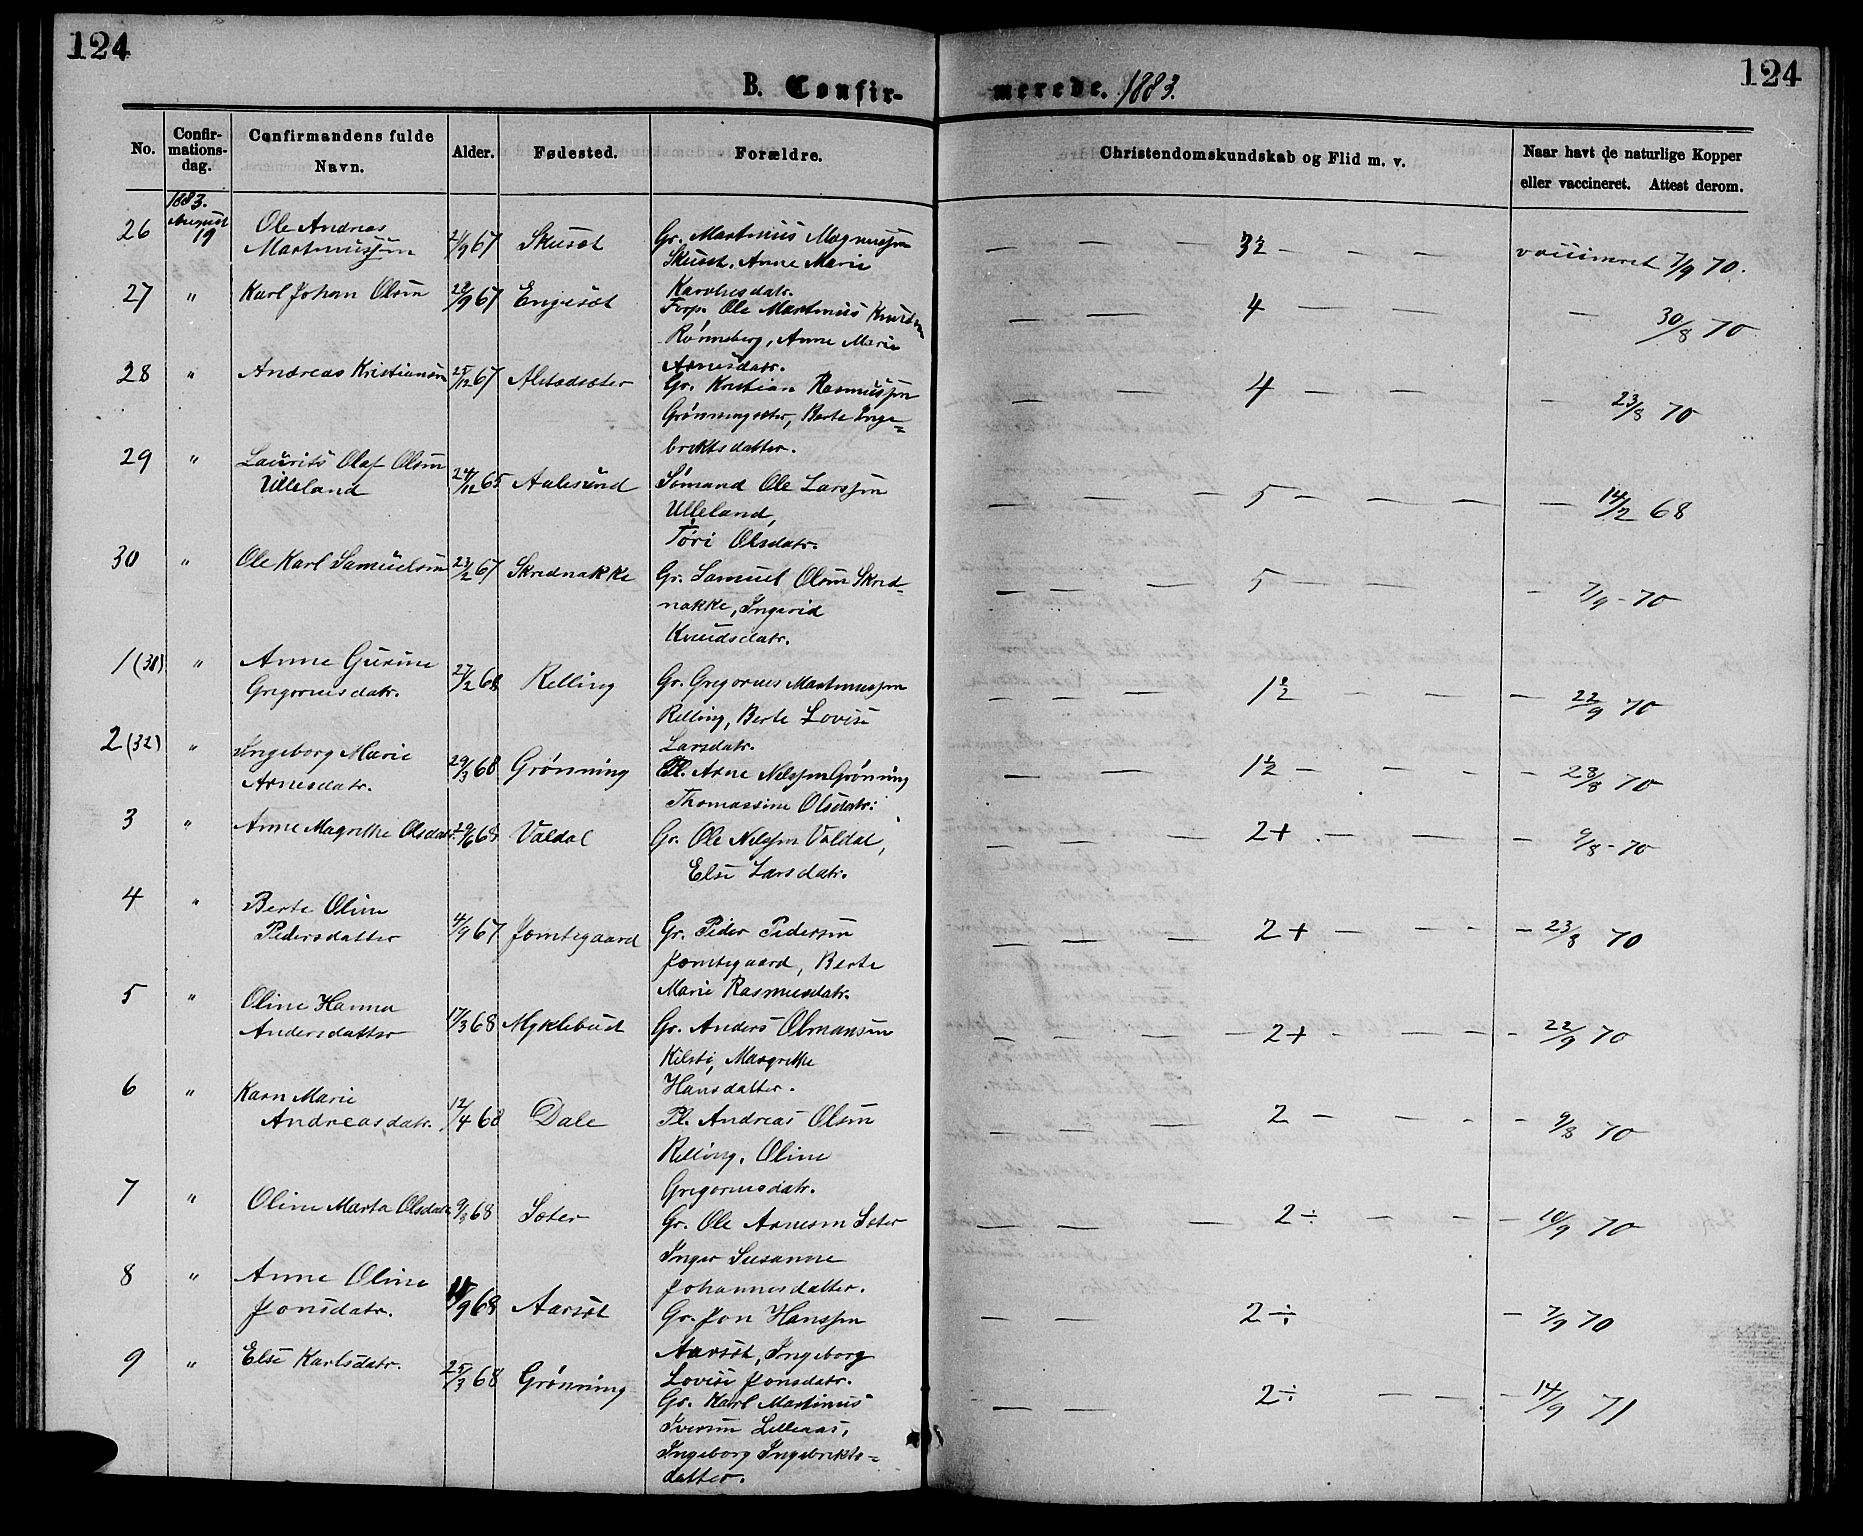 124
124
B. Confirmerede. 1883.
No. Confirmationsdag. Confirmandens fulde Navn. Alder. Fødested. Forældre. Christendomskundskab og Flid m. v. Naar havt de naturlige Kopper eller vaccineret. Attest derom.
1883.
August
26 19 Ole Andreas 9 67 Gr. Martinus Magnussen
Martinussen Anne Marie — — — 3½ — — — — vaccineret 7/9 70.
27 " Karl Johan Olsen 28/9 67 Engesæt Forp. Ole Martinus Knudsen
Rønneberg, Anne Marie — — 4 — — — — 30/8 70
Arnesdatr.
28 " Andreas Kristiansen /12 67 Gr. Kristian Rasmussen
Grønningsæter, Berte Inge= — — 4 — — — — 23/8 70
briktsdatter.
29 " Laurits Olaf Olsen
Ulleland 24/12 65 Aalesund Sømand Ole Larssen
Ulleland, — — — 5 — — — — — 14/2 68
Olsdatr.
30 " Ole Karl Samuelsen 23/2 67 Skrednakke Gr. Samuel Olsen Skred-
nakke, Ingerid — — — 5 — — — 7/9 - 70
Knudsdatr.
1 (31) " Anne Gurine
Gregoriusdatr. 27/2 68 Relling Gr. Gregorius Martinussen
Relling, Berte Lovise — — — 1½ — — — — 22/9 70
Larsdatr.
2 (32) " Ingeborg Marie
Arnesdatr. 29/3 68 Grønning Pl. Arne Nilssen Grønning
Thomassine Olsdatr. — — 1½ — — - - - 23/8 70
3 " Anne Magrethe Olsdatr. 29/6 68 Valdal Gr. Ole Nilssen Valdal,
Else Larsdatr. — — 2+ . — — — — 9/8 - 70
4 " Berte Oline
Pedersdatter 4/9 67 Jemtegaard Gr. Peder Pedersen
Jemtegaard, Berte — — — 2+ — — - - - 23/8 70
Marie Rasmusdatr.
5 " Oline Hanna
Andersdatter 17/3 68 Myklebust Gr. Anders Olmansen
Kilsti, Margrethe — — — 2+ - — — - 22/9 70
Hansdatter.
6 " Karn Marie
Andreasdatr. 12/4 68 Dale Pl. Andreas Olsen
Relling, Oline — — — 2 - — - - 9/8 70
Gregoriusdatr.
7 " Oline Marta Olsdatr 9/8 68 Sæter Gr. Ole Arnesen Sæter
Inger Susanne — — — 2÷ — — - - 10/9 70
Johannesdatter.
8 " Anne Oline
Jonsdatr. 11/9 68 Aarset Gr. Jon Hanssen
Aarset, Ingeborg — — 2÷ — 7/9 70
Lovise Jonsdatr.
9 " Else Karlsdatr. 25/3 68 Grønning Gr. Karl Martinus
Iversen Lilleaas, — — 2÷ — — - 14/9 71
Ingeborg Ingebrikts=
datter.